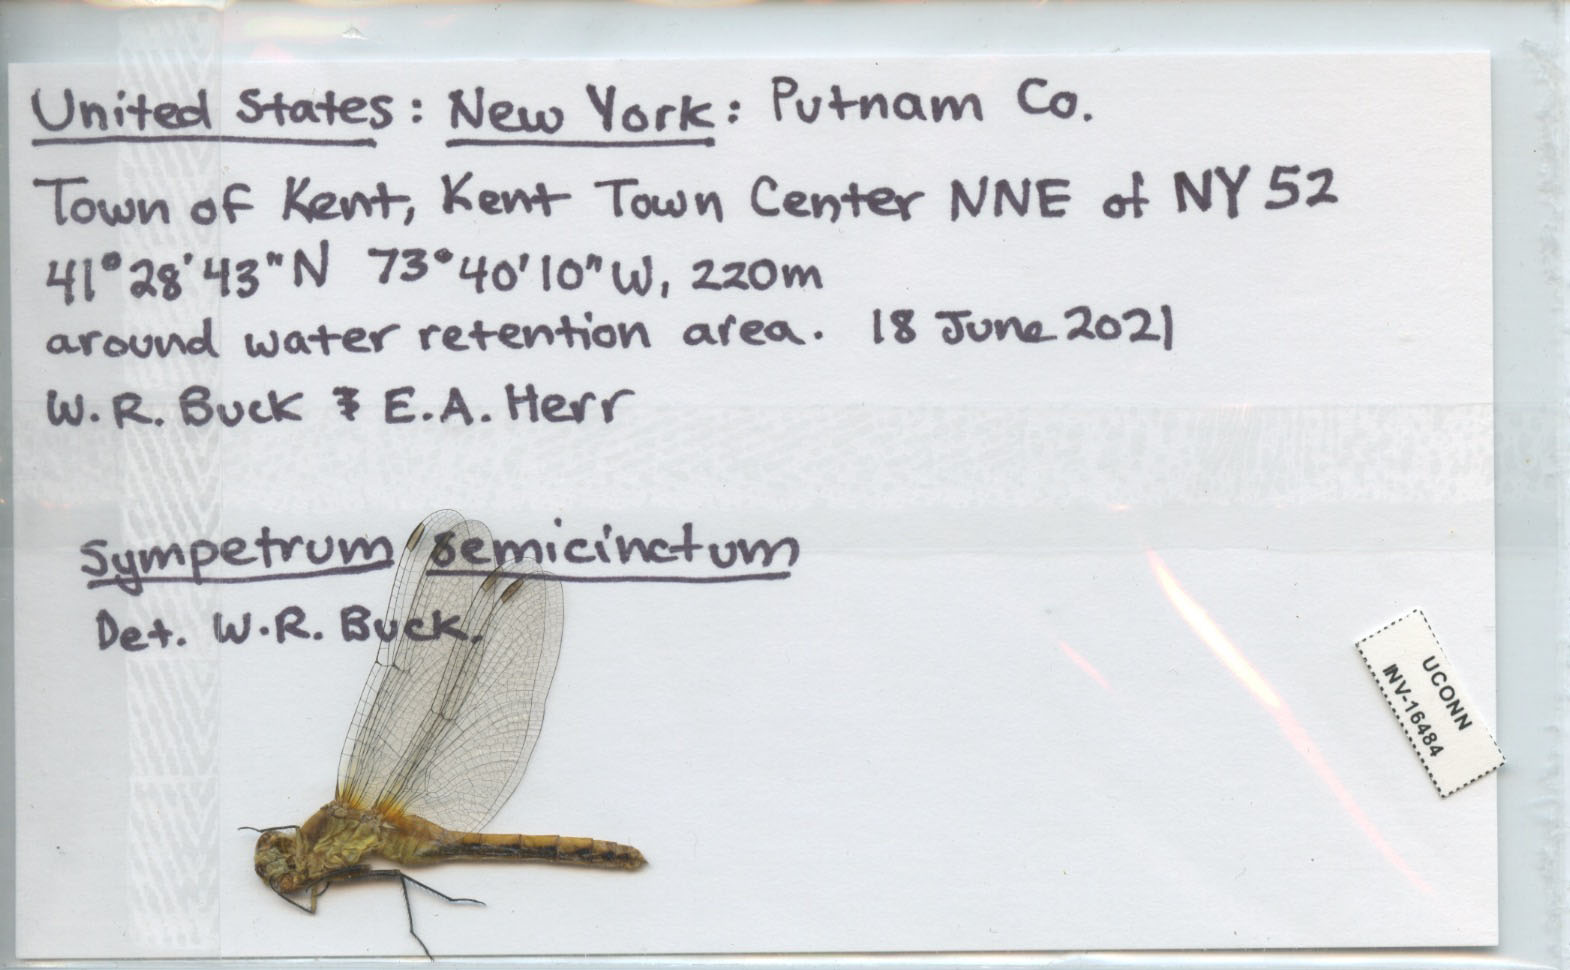 United States: New York: Putnam Co.
Town of Kent, Kent Town Center NNE of NY 52
41°28'43"N 73°40'10"W, 220m
around water retention area. 18 June 2021
W.R. Buck & E.A. Herr
Sympetrum semicinctum
Det. W.R. Buck.
UCONN
INV-16484